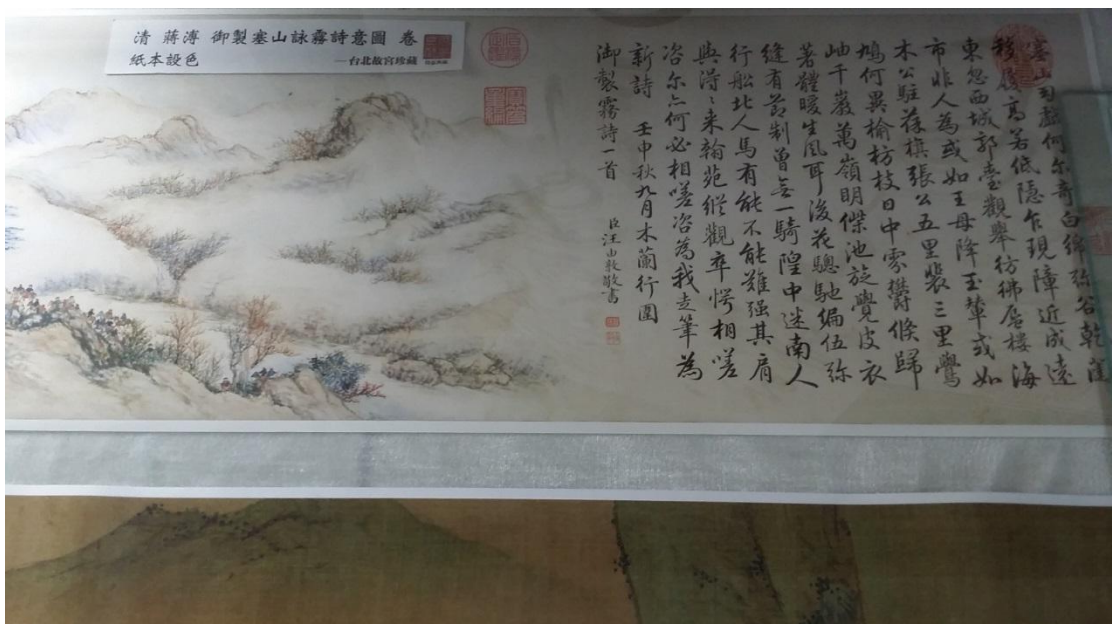 清 蔣溥 御製塞山詠霧詩意圖 卷
紙本設色
—台北故宮珍藏
塞山何尔奇白綿弥谷乾
高若低隱乍現障近成遠
東忽西城郭臺觀舉彷彿蜃樓海
市非人為或如王母降玉輦或如
木公駐葆旗張公五里裴三里鷽
鳩何異榆枋枝日中雰鬱倏歸
岫千巖萬嶺明傑池旋覺皮衣
著體暖生風耳後花驄馳編伍弥
縫有節制曾無一騎隍中迷南人
行船北人馬有能不能難强其肩
與得〻来翰苑縱觀卒愕相嗟
咨尔何必相嗟咨為我走筆為
新詩 壬申秋九月木蘭行圍
御製霧詩一首
臣汪由敦敬書